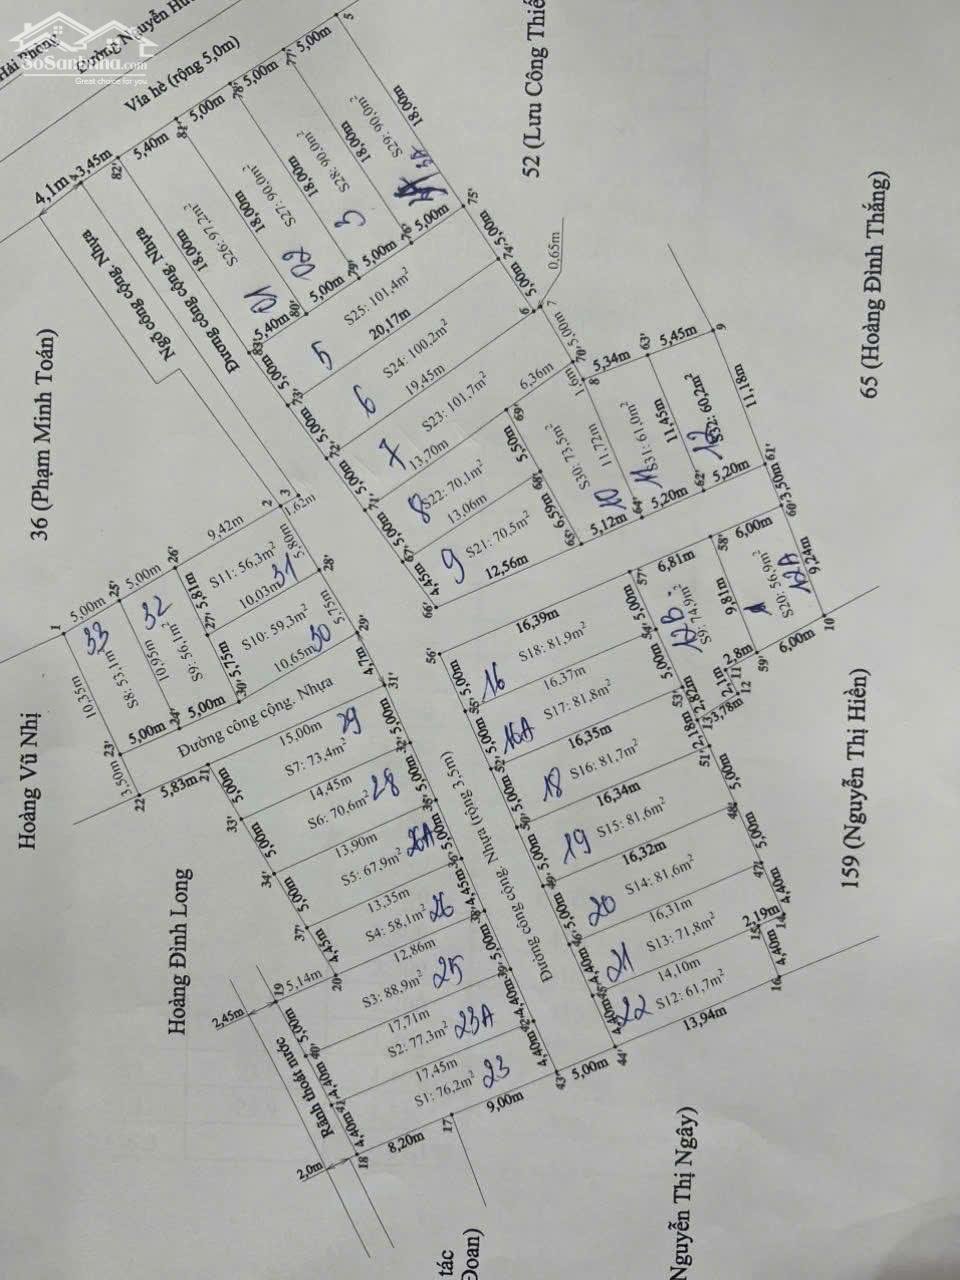 SoSanhnha.com
Great choice for you
Hải Phòng
Đường Nguyễn
Vỉa hè (rộng 5,0m)
4,1m
3,45m
5,40m
5,00m
5,00m
5,00m
82'
81'
78'
77'
5
52 (Lưu Công Thiế
36 (Phạm Minh Toán)
Ngõ công cộng. Nhựa
Đường công cộng. Nhựa
18,00m
S26: 97,2m²
01
18,00m
S27: 90,0m²
02
18,00m
S28: 90,0m²
3
18,00m
S29: 90,0m²
3A
18,00m
83'
5,40m
80'
5,00m
79'
5,00m
76'
5,00m
75'
5,00m
74'
5,00m
6
7
0,65m
S25: 101,4m²
5
20,17m
S24: 100,2m²
6
19,45m
S23: 101,7m²
7
13,70m
6,36m
S22: 70,1m²
8
13,06m
S21: 70,5m²
9
12,56m
5,00m
73'
5,00m
72'
5,00m
71'
5,00m
67'
4,45m
66'
5,50m
69'
68'
6,59m
65'
5,00m
70'
1,6m
8
5,34m
63'
5,45m
9
S30: 73,5m²
10
11,72m
S31: 61,0m²
11
11,45m
S32: 60,2m²
12
11,18m
5,12m
64'
5,20m
62'
5,20m
61'
3,50m
60'
65 (Hoàng Đình Thắng)
1
5,00m
25'
5,00m
26'
9,42m
2
3
1,62m
10,35m
S8: 53,1m²
33
10,95m
S9: 56,1m²
32
5,81m
27'
S11: 56,3m²
31
10,03m
5,80m
28'
S10: 59,3m²
30
10,65m
5,75m
29'
4,7m
31'
23'
5,00m
24'
5,00m
30'
5,75m
3,50m
22
5,83m
21
Đường công cộng. Nhựa
Hoàng Vũ Nhị
Hoàng Đình Long
15,00m
S7: 73,4m²
29
14,45m
S6: 70,6m²
28
13,90m
S5: 67,9m²
26A
13,35m
S4: 58,1m²
26
12,86m
S3: 88,9m²
25
17,71m
S2: 77,3m²
23A
17,45m
S1: 76,2m²
23
5,00m
33'
5,00m
34'
5,00m
37'
4,45m
20
5,14m
19
2,45m
5,00m
40'
4,40m
41'
4,40m
18
2,0m
Rãnh thoát nước
8,20m
17
9,00m
43'
5,00m
44'
5,00m
32'
5,00m
35'
5,00m
36'
4,45m
38'
5,00m
39'
4,40m
42'
4,40m
Đường công cộng. Nhựa (rộng 3,5m)
56'
16,39m
S18: 81,9m²
16
16,37m
S17: 81,8m²
16A
16,35m
S16: 81,7m²
18
16,34m
S15: 81,6m²
19
16,32m
S14: 81,6m²
20
16,31m
S13: 71,8m²
21
14,10m
S12: 61,7m²
22
13,94m
5,00m
55'
5,00m
52'
5,00m
50'
5,00m
49'
5,00m
46'
4,40m
45'
4,40m
57'
6,81m
58'
6,00m
5,00m
54'
5,00m
53'
2,82m
13
2,18m
51'
5,00m
48'
5,00m
47'
4,40m
14
2,19m
15
4,40m
16
74,9m²
12B
9,81m
S20: 56,9m²
12A
9,24m
6,00m
10
59'
2,8m
11
2,1m
12
3,78m
159 (Nguyễn Thị Hiền)
Nguyễn Thị Ngây)
tác
Đoan)